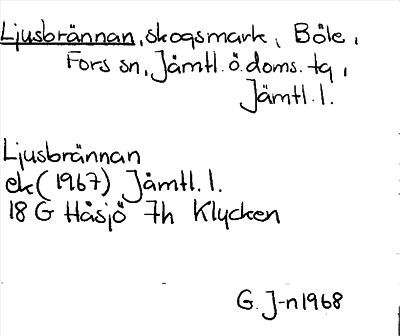 Ljusbrännan, skogsmark, Böle,
Fors sn, Jämtl.ö.doms.tg,
Jämtl.l.
Ljusbrännan
ek (1967) Jämtl.l.
18 G Håsjö 7h Klycken
G. J-n 1968